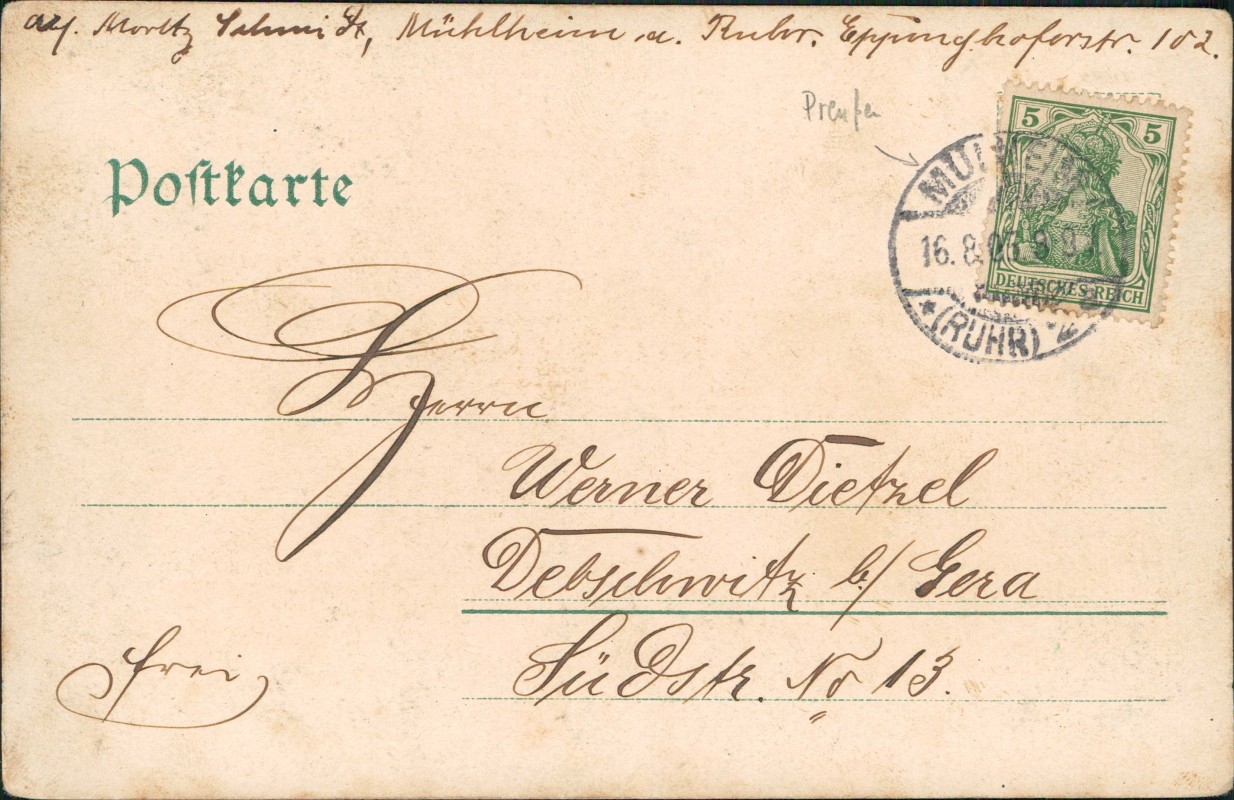 Moritz Schmidt, Mühlheim a. Ruhr. Eppinghoferstr. 102.
Preußen
5 5
DEUTSCHES REICH
MÜLHEIM
16.8.05. 8-9
* (RUHR)
Postkarte
Herrn
Werner Dietzel
Debschwitz b/ Gera
Südstr. No 13.
frei